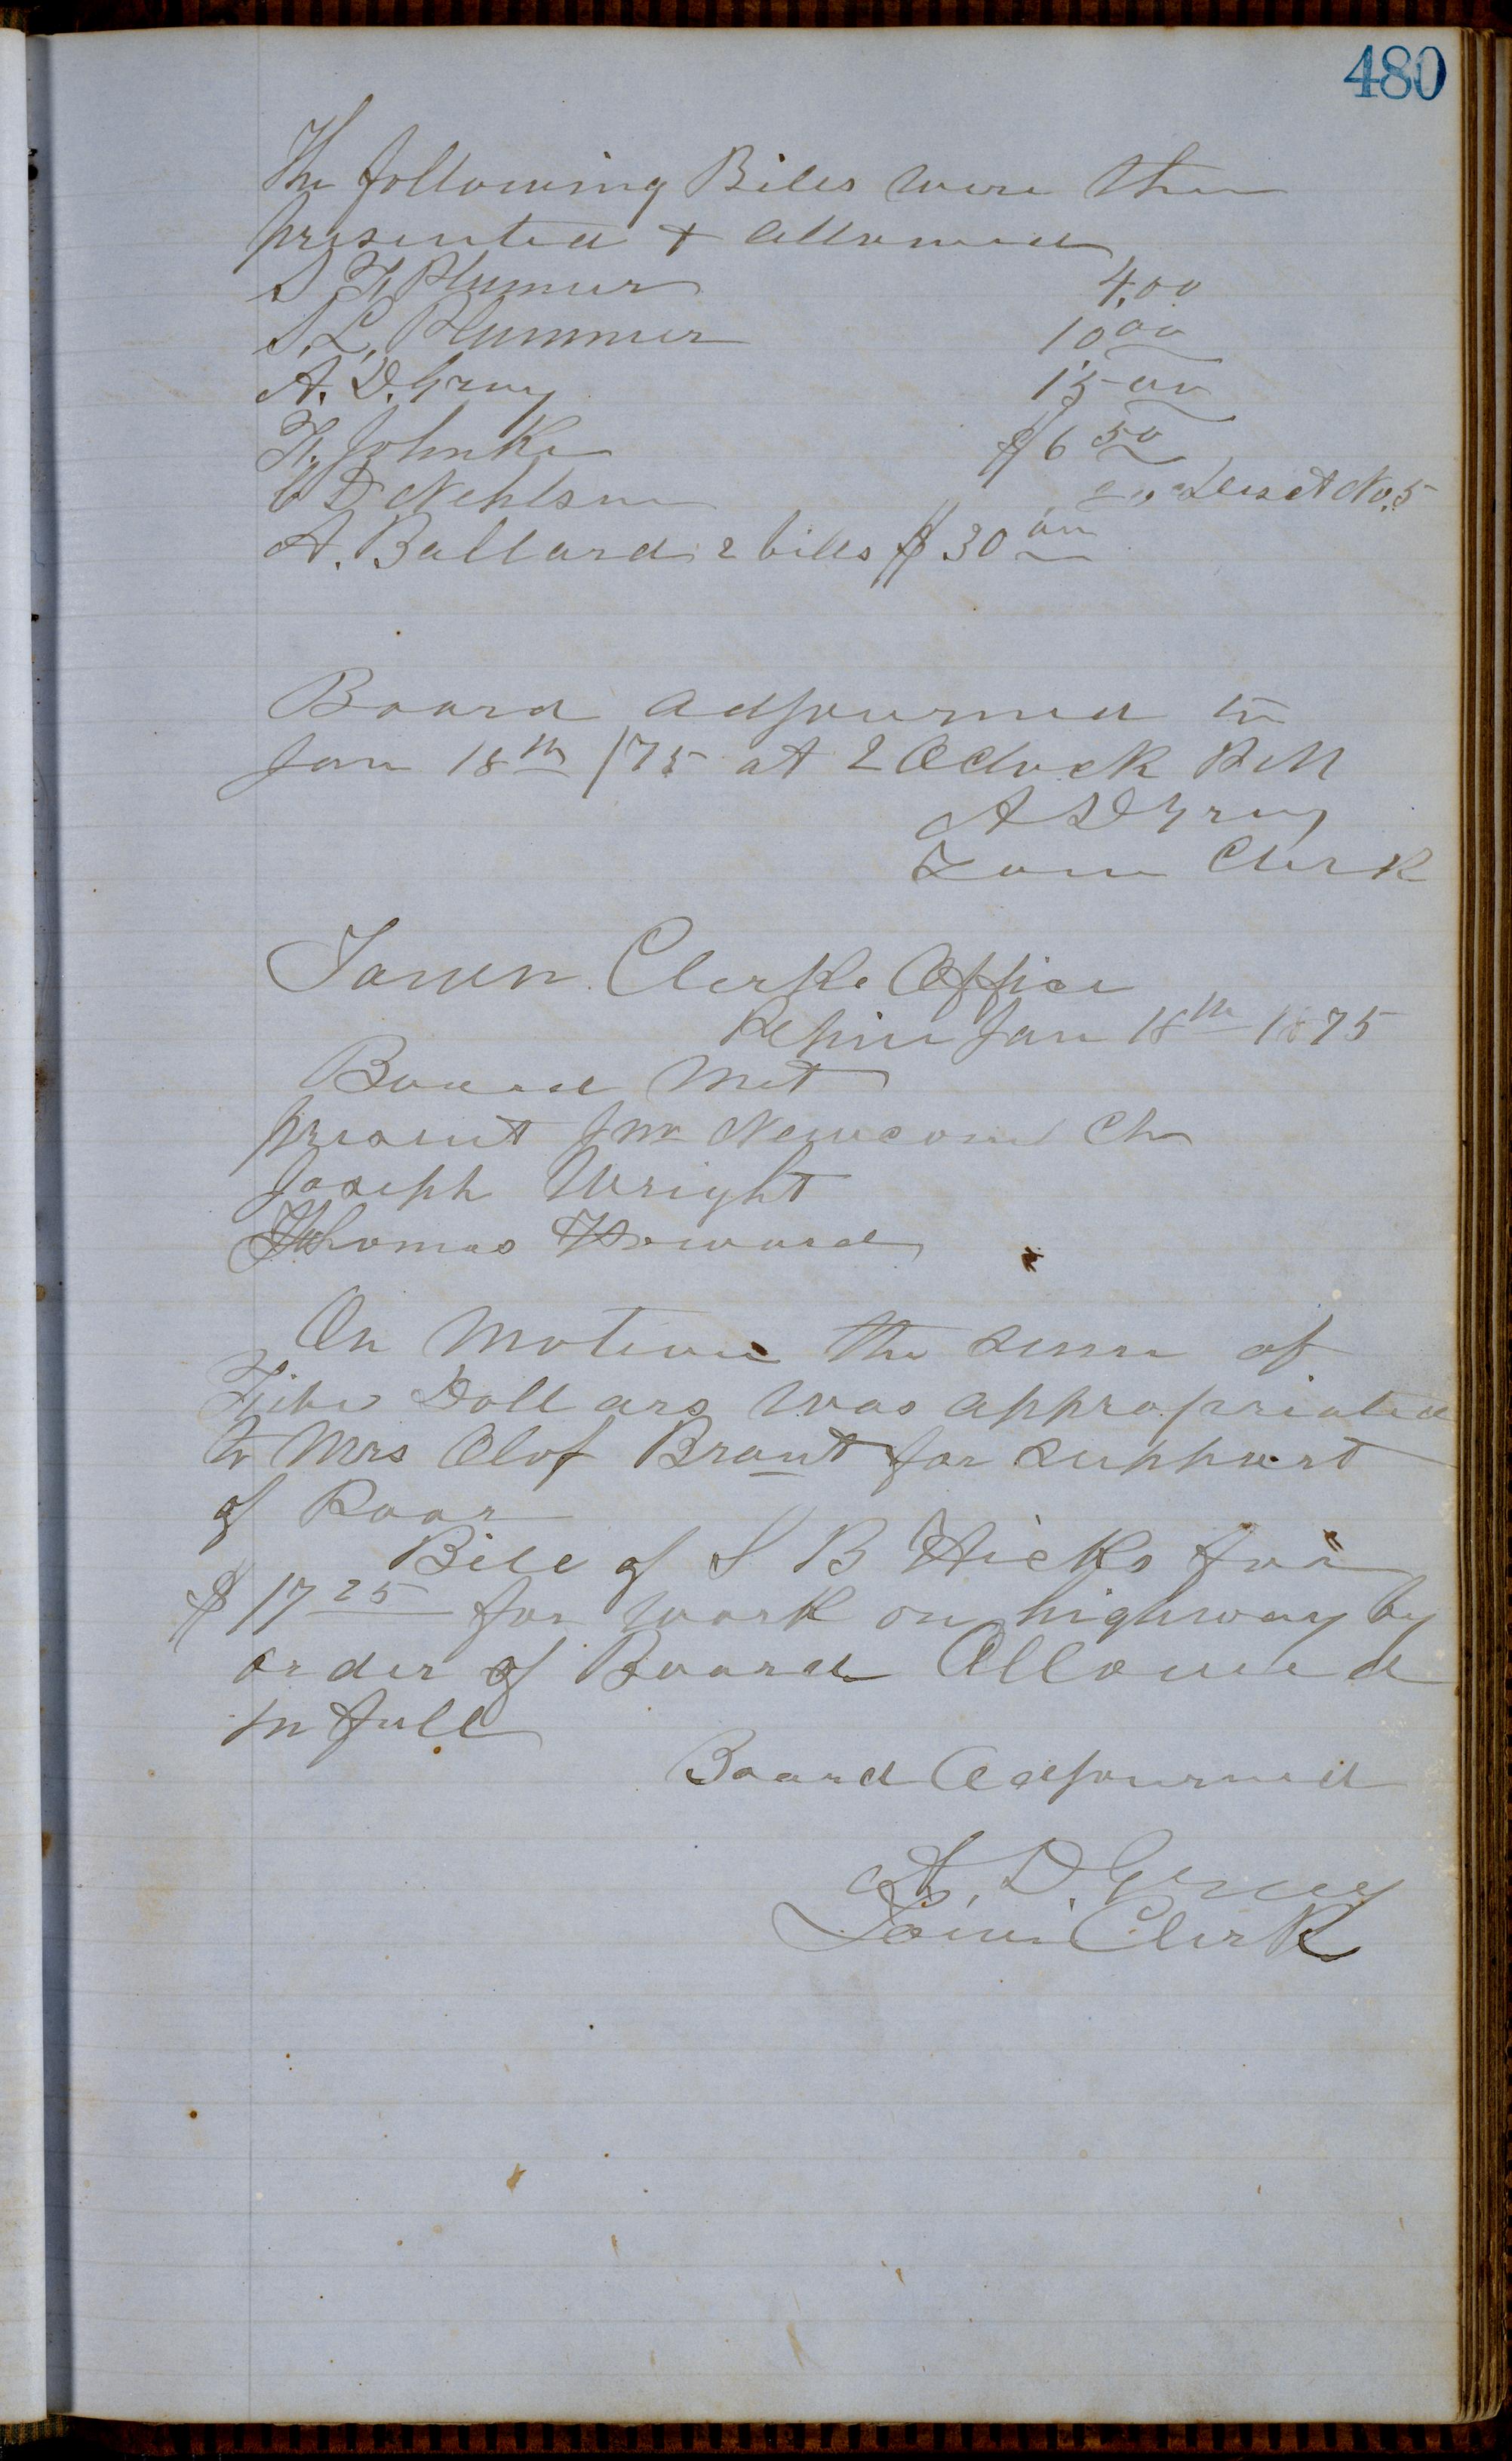 480
The following Bills were then
presented + allowed
S. F. Plumer 4.00
S. L. Plummer 10 00
A. D. Gray 15 00
F. Johnke $6 50
Nehlsen Disct No. 5
A. Ballard 2 bills $30 00
Board adjourned to
Jan 18th /75 at 2 Oclock P.M
A D Gray
Town Clerk
Town Clerks Office
Pepin Jan 18th 1875
Board Met
present Newcomb Ch
Joseph Wright
Thomas Howard
On Motion the sum of
Five Dollars was appropriated
to Mrs Olof Brant for support
of Poor
Bill of S B Hicks for
$17 25 for work on highway by
order of Board Allowed
in full
Board Adjourned
A. D. Gray
Town Clerk